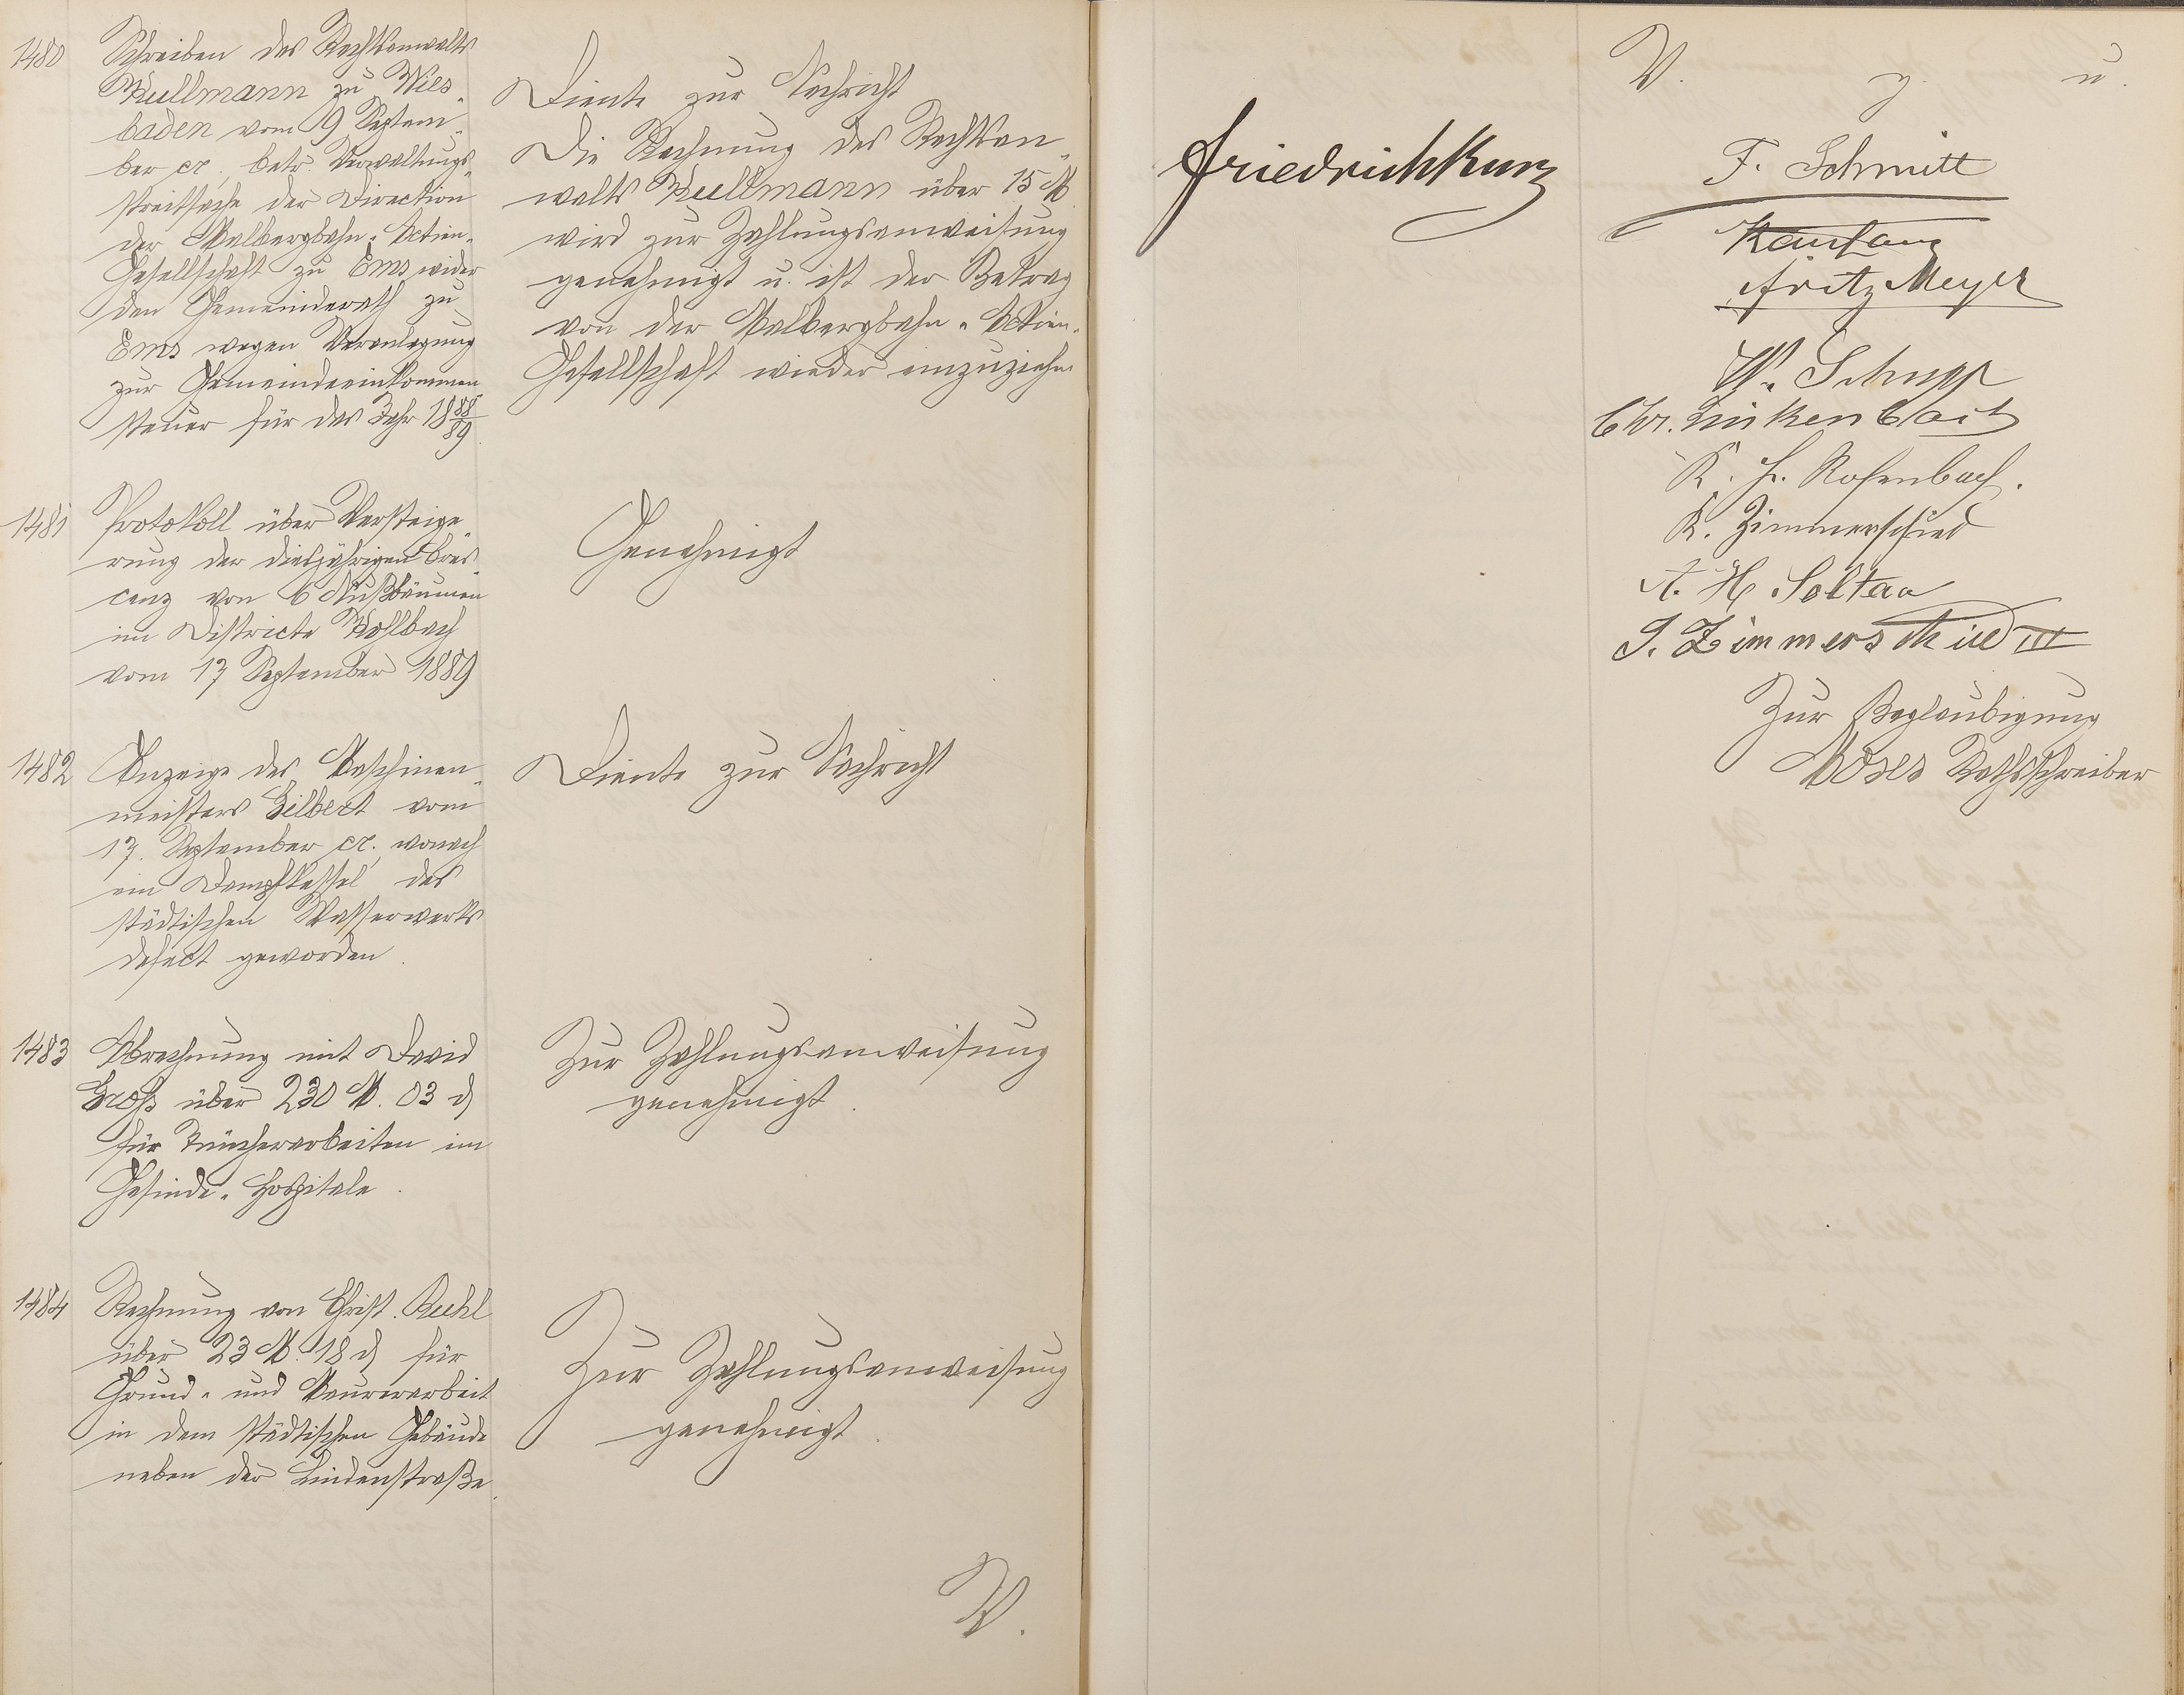 1480
Schreiben des Rechtsanwalts
Kullmann zu Wies-
baden vom 9 Septem-
ber cr., betr. Verwaltungs-
streitsache der Direction
der Malbergbahn-Actien-
Gesellschaft zu Ems wider
den Gemeinderath zu
Ems wegen Veranlagung
zur Gemeindeeinkommen-
steuer für das Jahr 1888/89
Diente zur Nachricht
Die Rechnung des Rechtsan-
walts Kullmann über 15 M
wird zur Zahlungsanweisung
genehmigt u. ist der Betrag
von der Malbergbahn-Actien-
Gesellschaft wieder einzuziehn
1481
Protokoll über Versteige-
rung der diesjährigen Cres-
cenz von 6 Nußbäumen
im Districte
vom 17 September 1889
Genehmigt
1482
Anzeige des Maschinen-
meisters Gilbert vom
17. September cr. wonach
ein Dampfkessel des
städtischen Wasserwerks
defect geworden.
Diente zur Nachricht
1483
Abrechnung mit David
Groß über 230 M. 03 d
für Tüncherarbeiten im
Gesinde-Hospitale.
Zur Zahlungsanweisung
genehmigt.
1484
Rechnung von Christ. Ruhl
über 23 M. 18 d für
Grund- und Maurerarbeit
in dem städtischen Gebäude
neben der Lindenstraße.
Zur Zahlungsanweisung
genehmigt.
V.
Friedrich Kurz
V. g. u.
F. Schmitt
Fritz Meyer
W. Schupp
Chr. Linkenbach
K. H. Rosenbach.
K. Zimmerschied
A. H. Soltau
J. Zimmerschied III
Zur Beglaubigung
Moses Rathsschreiber